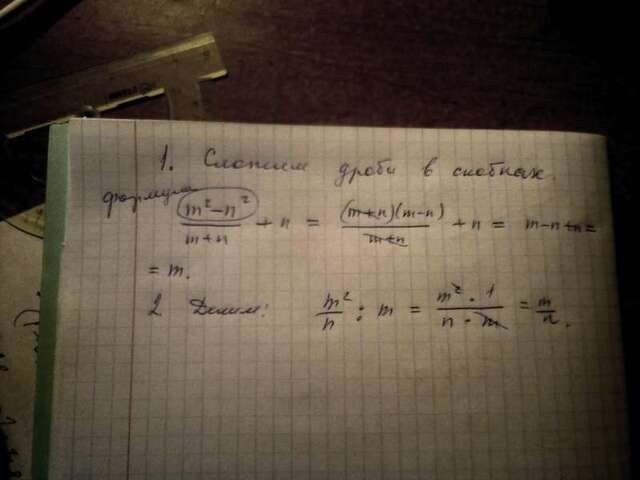 1. Сложим дроби в скобках.
формула
(m²-n²)/(m+n) + n = (m+n)(m-n)/(m+n) + n = m-n+n =
= m.
2. Делим: m²/n : m = m²·1/n·m = m/n.